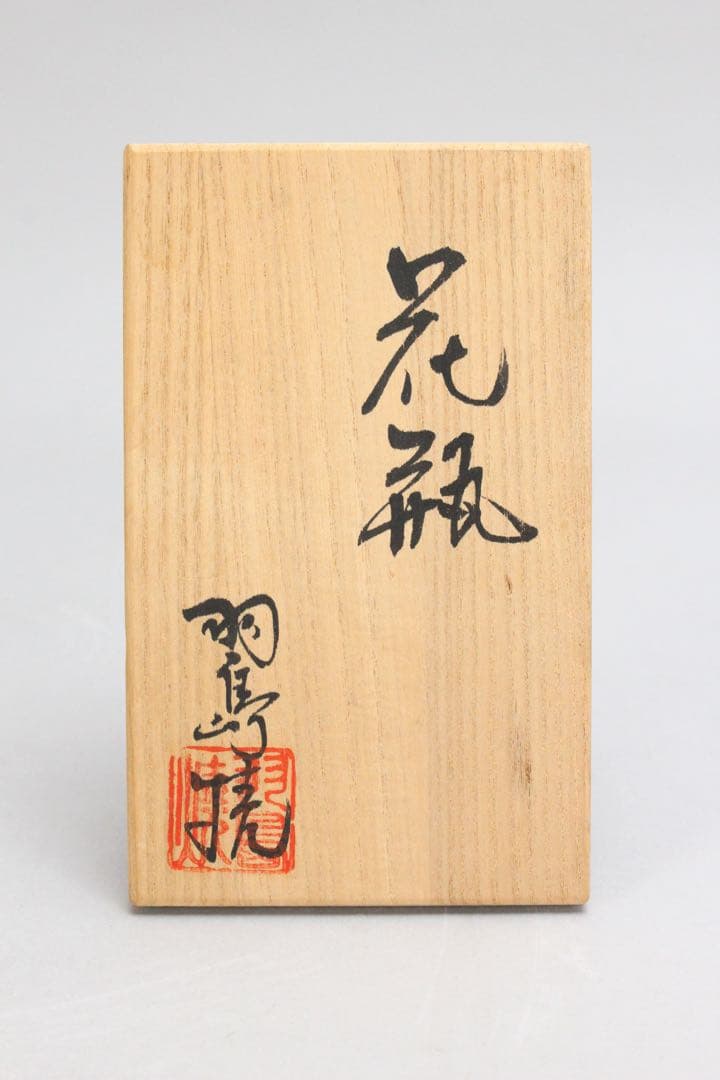 花瓶
羽島